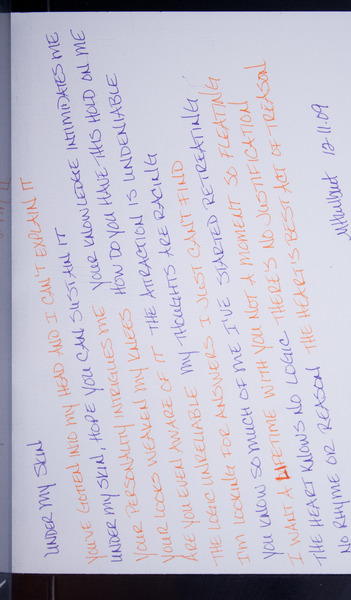 UNDER MY SKIN
YOU'VE GOTTEN INTO MY HEAD AND I CAN'T EXPLAIN IT
UNDER MY SKIN, HOPE YOU CAN SUSTAIN IT
YOUR PERSONALITY INTRIGUES ME YOUR KNOWLEDGE INTIMIDATES ME
YOUR LOOKS WEAKEN MY KNEES HOW DO YOU HAVE THIS HOLD ON ME
ARE YOU EVEN AWARE OF IT THE ATTRACTION IS UNDENIABLE
THE LOGIC UNRELIABLE MY THOUGHTS ARE RACING
I'M LOOKING FOR ANSWERS I JUST CAN'T FIND
YOU KNOW SO MUCH OF ME I'VE STARTED RETREATING
I WANT A LIFETIME WITH YOU NOT A MOMENT SO FLEATING
THE HEART KNOWS NO LOGIC THERE'S NO JUSTIFICATION
NO RHYME OR REASON THE HEART IS BEST ACT OF TREASON
12-11-09